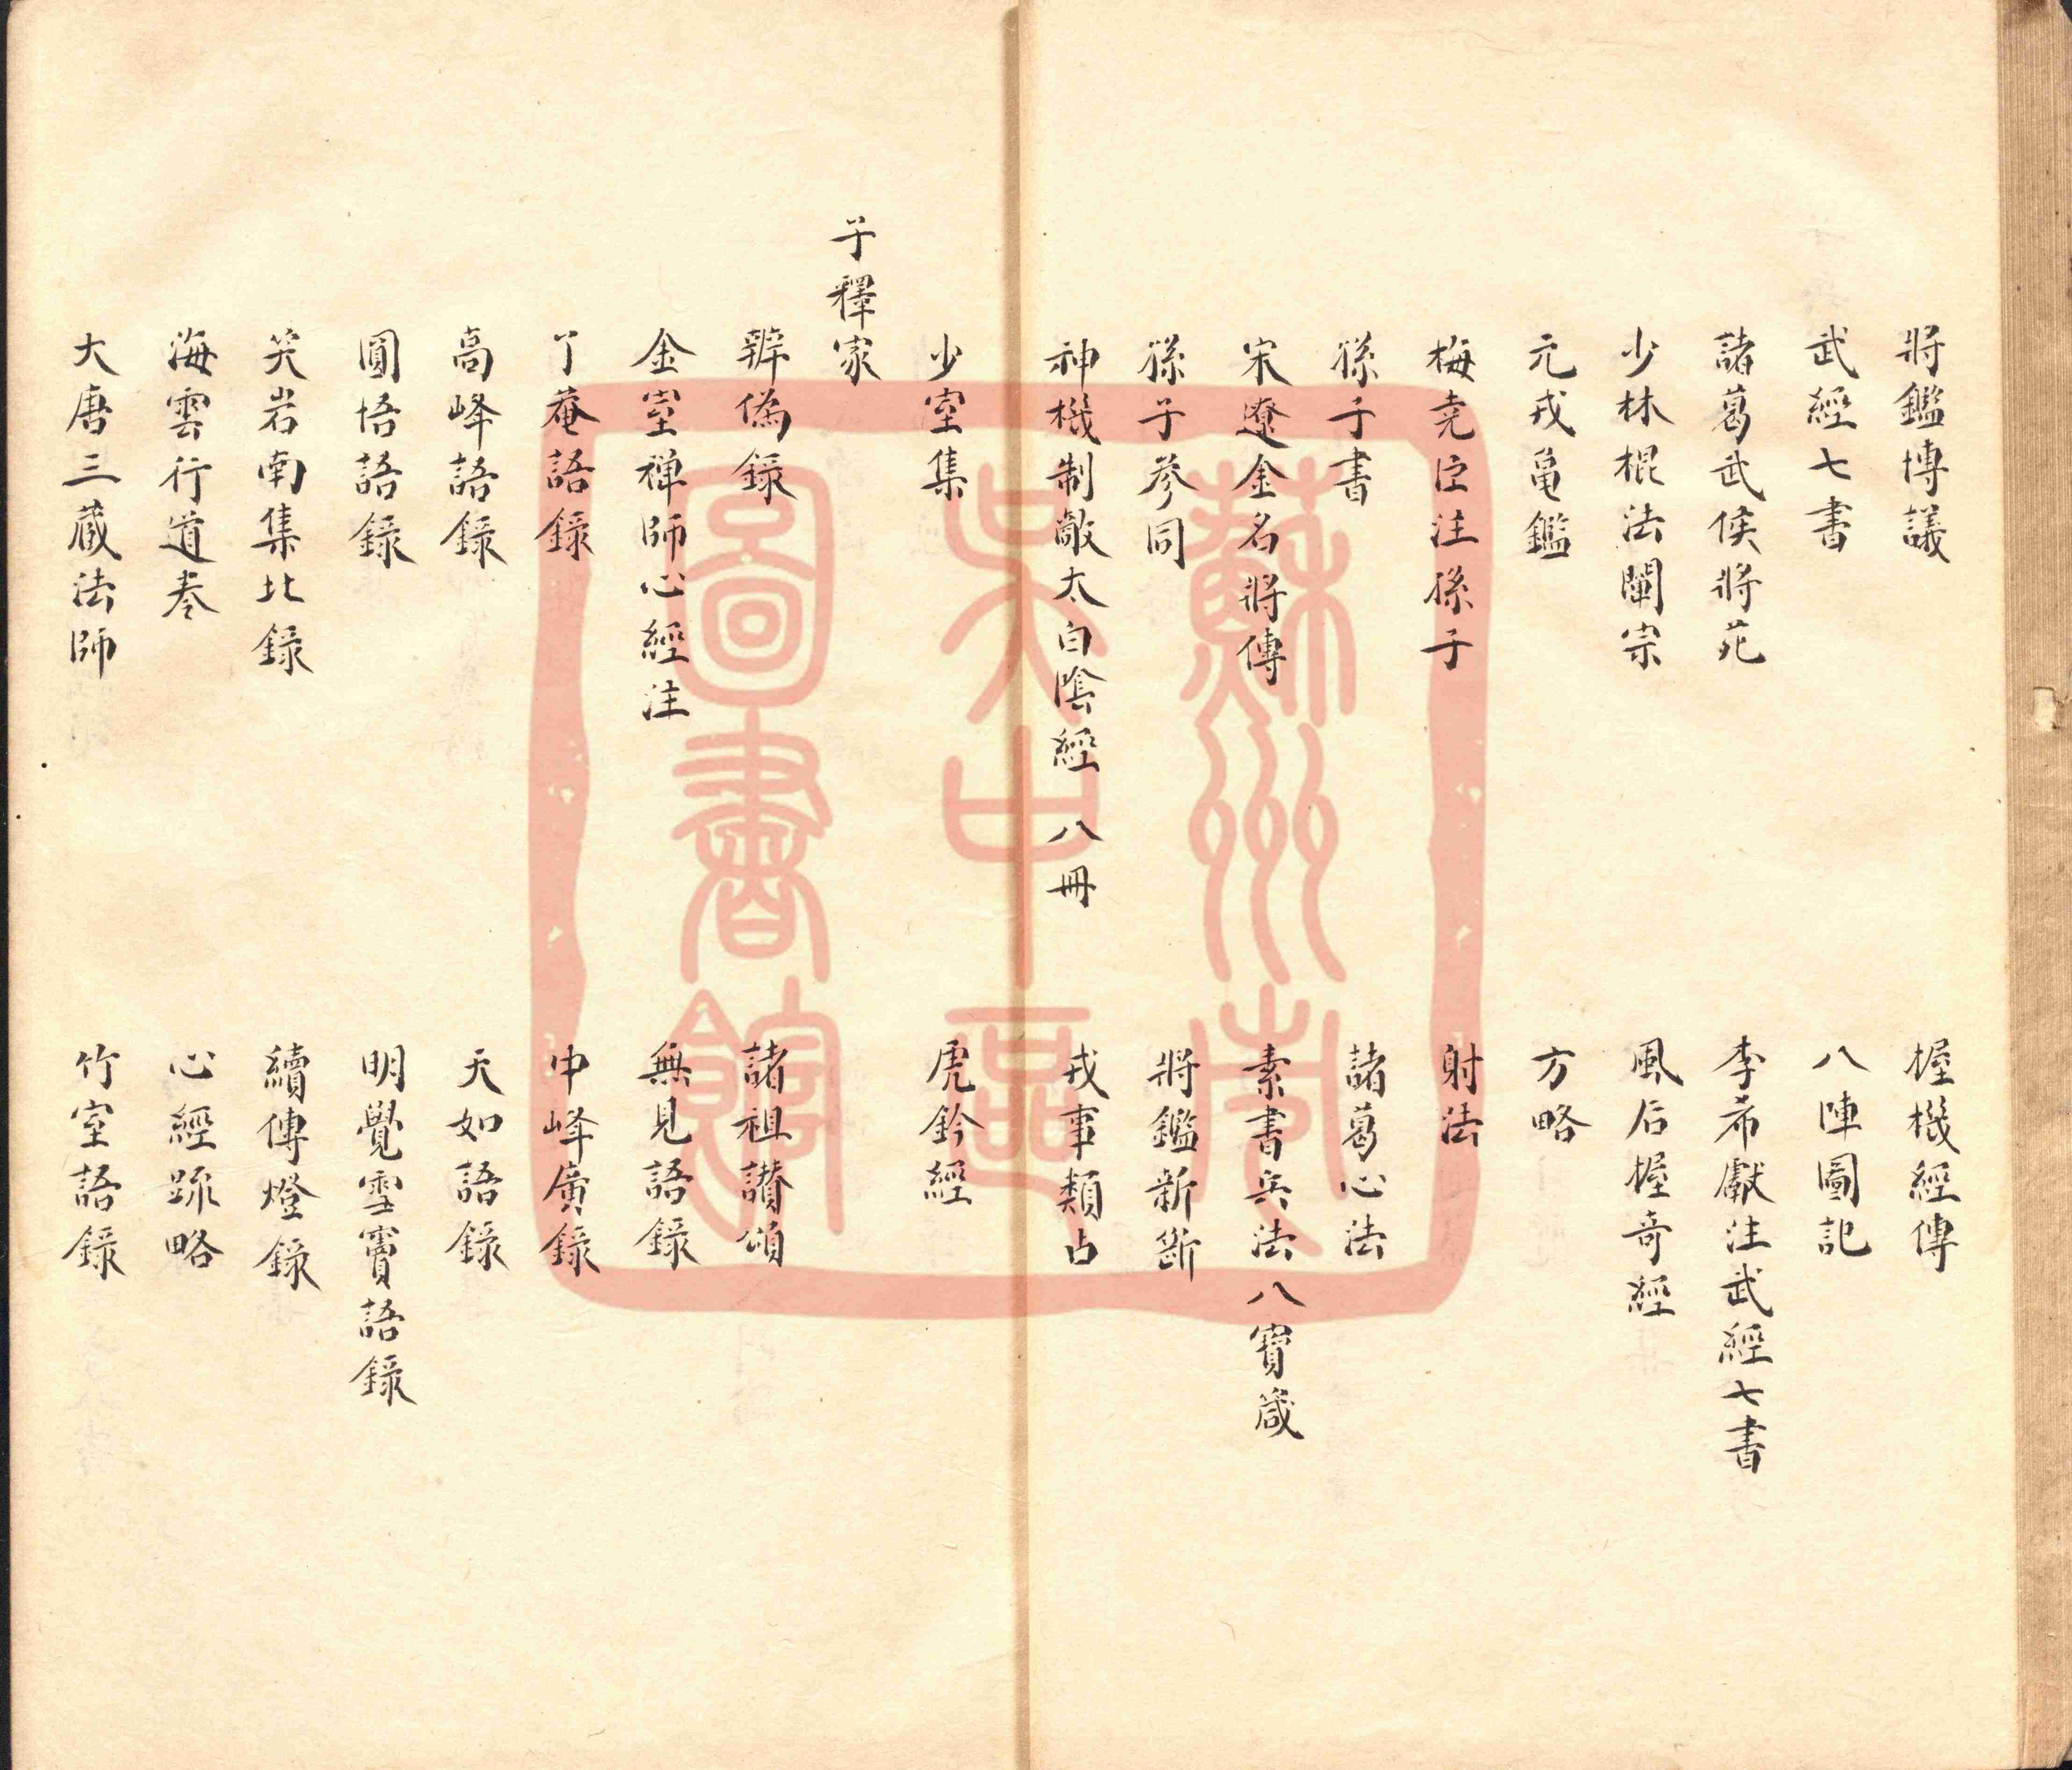 將鑑博議
握機經傳
武經七書
八陣圖記
諸葛武侯將苑
李希獻注武經七書
少林棍法闡宗
風后握奇經
元戎龜鑑
方略
梅堯臣注孫子
射法
孫子書
諸葛心法
宋遼金名將傳
素書兵法八寶箴
孫子參同
將鑑新斷
神機制敵太白陰經 八冊
戎事類占
少室集
虎鈐經
子釋家
辨偽錄
諸祖讚頌
金室禅師心經注
無見語錄
了菴語錄
中峰廣錄
高峰語錄
天如語錄
圓悟語錄
明覺雪竇語錄
笑岩南集北錄
續傳燈錄
海雲行道
心經疏略
大唐三藏法師
竹室語錄
蘇州市
吳中區
圖書館